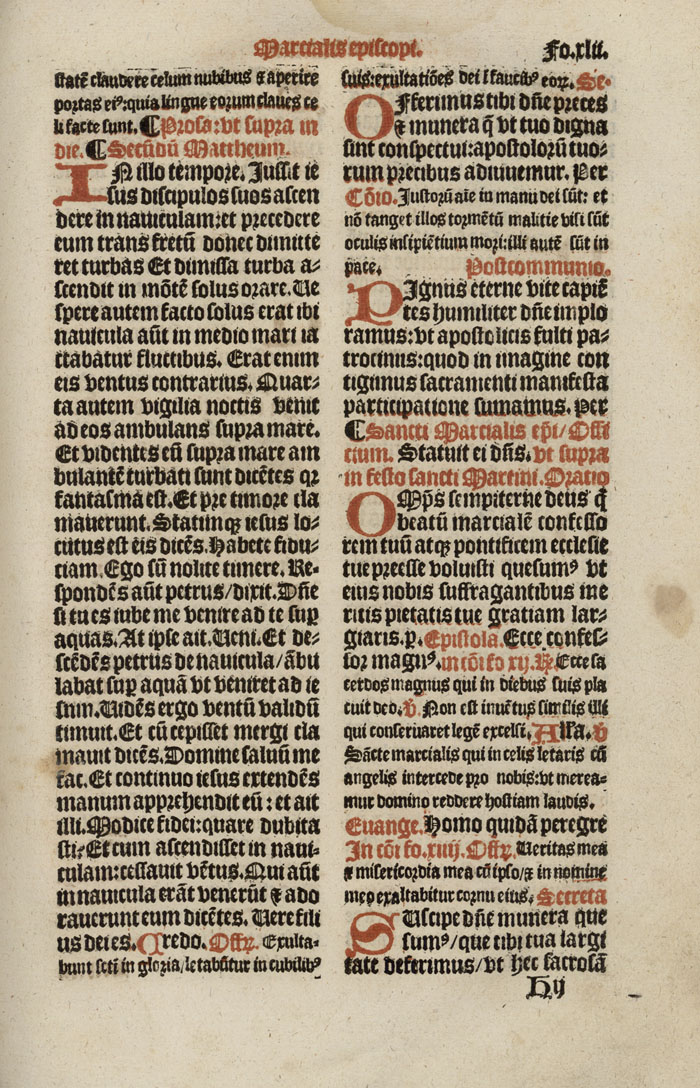 Marcialis episcopi. Fo.xlii.
statē claudere celum nubibus ⁊ aperire
portas eiꝰ: quia lingue eorum claues ce
li facte sunt. ¶ Prosa: vt supra in
die. ¶ Secūdū Mattheum.
IN illo tempore. Jussit ie
sus discipulos suos ascen
dere in nauiculam: et precedere
eum trans fretū donec dimitte
ret turbas Et dimissa turba a⸗
scendit in mōtē solus orare. Ue
spere autem facto solus erat ibi
nauicula aūt in medio mari ia
ctabatur fluctibus. Erat enim
eis ventus contrarius. Quar⸗
ta autem vigilia noctis venit
ad eos ambulans supra mare.
Et videntes eū supra mare am
bulantē turbati sunt dicētes qꝛ
fantasma est. Et pre timore cla
mauerunt. Statimqꝫ iesus lo⸗
cutus est eis dicēs. Habete fidu⸗
ciam. Ego sū nolite timere. Re⸗
spondēs aūt petrus/dixit. Dn̄e
si tu es iube me venire ad te suꝑ
aquas. At ipse ait. Ueni. Et de⸗
scēdēs petrus de nauicula/ābu
labat suꝑ aquā vt veniret ad ie
sum. Uidēs ergo ventū validū
timuit. Et cū cepisset mergi cla
mauit dicēs. Domine saluū me
fac. Et continuo iesus extendēs
manum apprehendit eū: et ait
illi. Modice fidei: quare dubita
sti: Et cum ascendisset in naui⸗
culam: cessauit vētus. Qui aūt
in nauicula erāt venerūt ⁊ ado
rauerunt eum dicētes. Uere fili
us dei es. Credo. Offꝝ. Exulta⸗
bunt scti̅ in gloria/letabūtur in cubilibꝰ
suis: exultatiōes dei ī faucibꝰ eoꝝ. Se.
OFferimus tibi dn̄e preces
⁊ munera q̄ vt tuo digna
sint conspectui: apostolorū tuo⸗
rum precibus adiuuemur. Per
Cōio. Justorū aīe in manu dei sūt: et
nō tanget illos tormētū malitie visi sūt
oculis insipiētium mori: illi autē sūt in
pace. Postcommunio.
PIgnus eterne vite capiē
tes humiliter dn̄e implo
ramus: vt apostolicis fulti pa⸗
trocinus: quod in imagine con
tigimus sacramenti manifesta
participatione sumamus. Per
¶ Sancti Marcialis epi̅/Offi
cium. Statuit ei dn̄s. vt supra
in festo sancti Martini. Oratio
OMp̄s sempiterne deus q̄
beatū marcialē confesso
rem tuū atqꝫ pontificem ecclesie
tue preesse voluisti quesumꝰ vt
eius nobis suffragantibus me
ritis pietatis tue gratiam lar⸗
giaris. p. Epistola. Ecce confes⸗
sor magnꝰ. in cōi fo xij. ℟. Ecce sa
cerdos magnus qui in diebus suis pla
cuit deo. ℣. Non est inuētus similis illi
qui conseruaret legē excelsi. Alla. ℣
Sācte marcialis qui in celis letaris cū
angelis intercede pro nobis: vt merea⸗
mur domino reddere hostiam laudis.
Euange. Homo quidā peregre
In cōi fo. xiiij. Offꝝ. Ueritas mea
⁊ misericordia mea cū ipso/⁊ in nomine
meo exaltabitur cornu eius. Secreta
SUscipe dn̄e munera que
sumꝰ/que tibi tua largi
tate deferimus/vt hec sacrosā
H ij